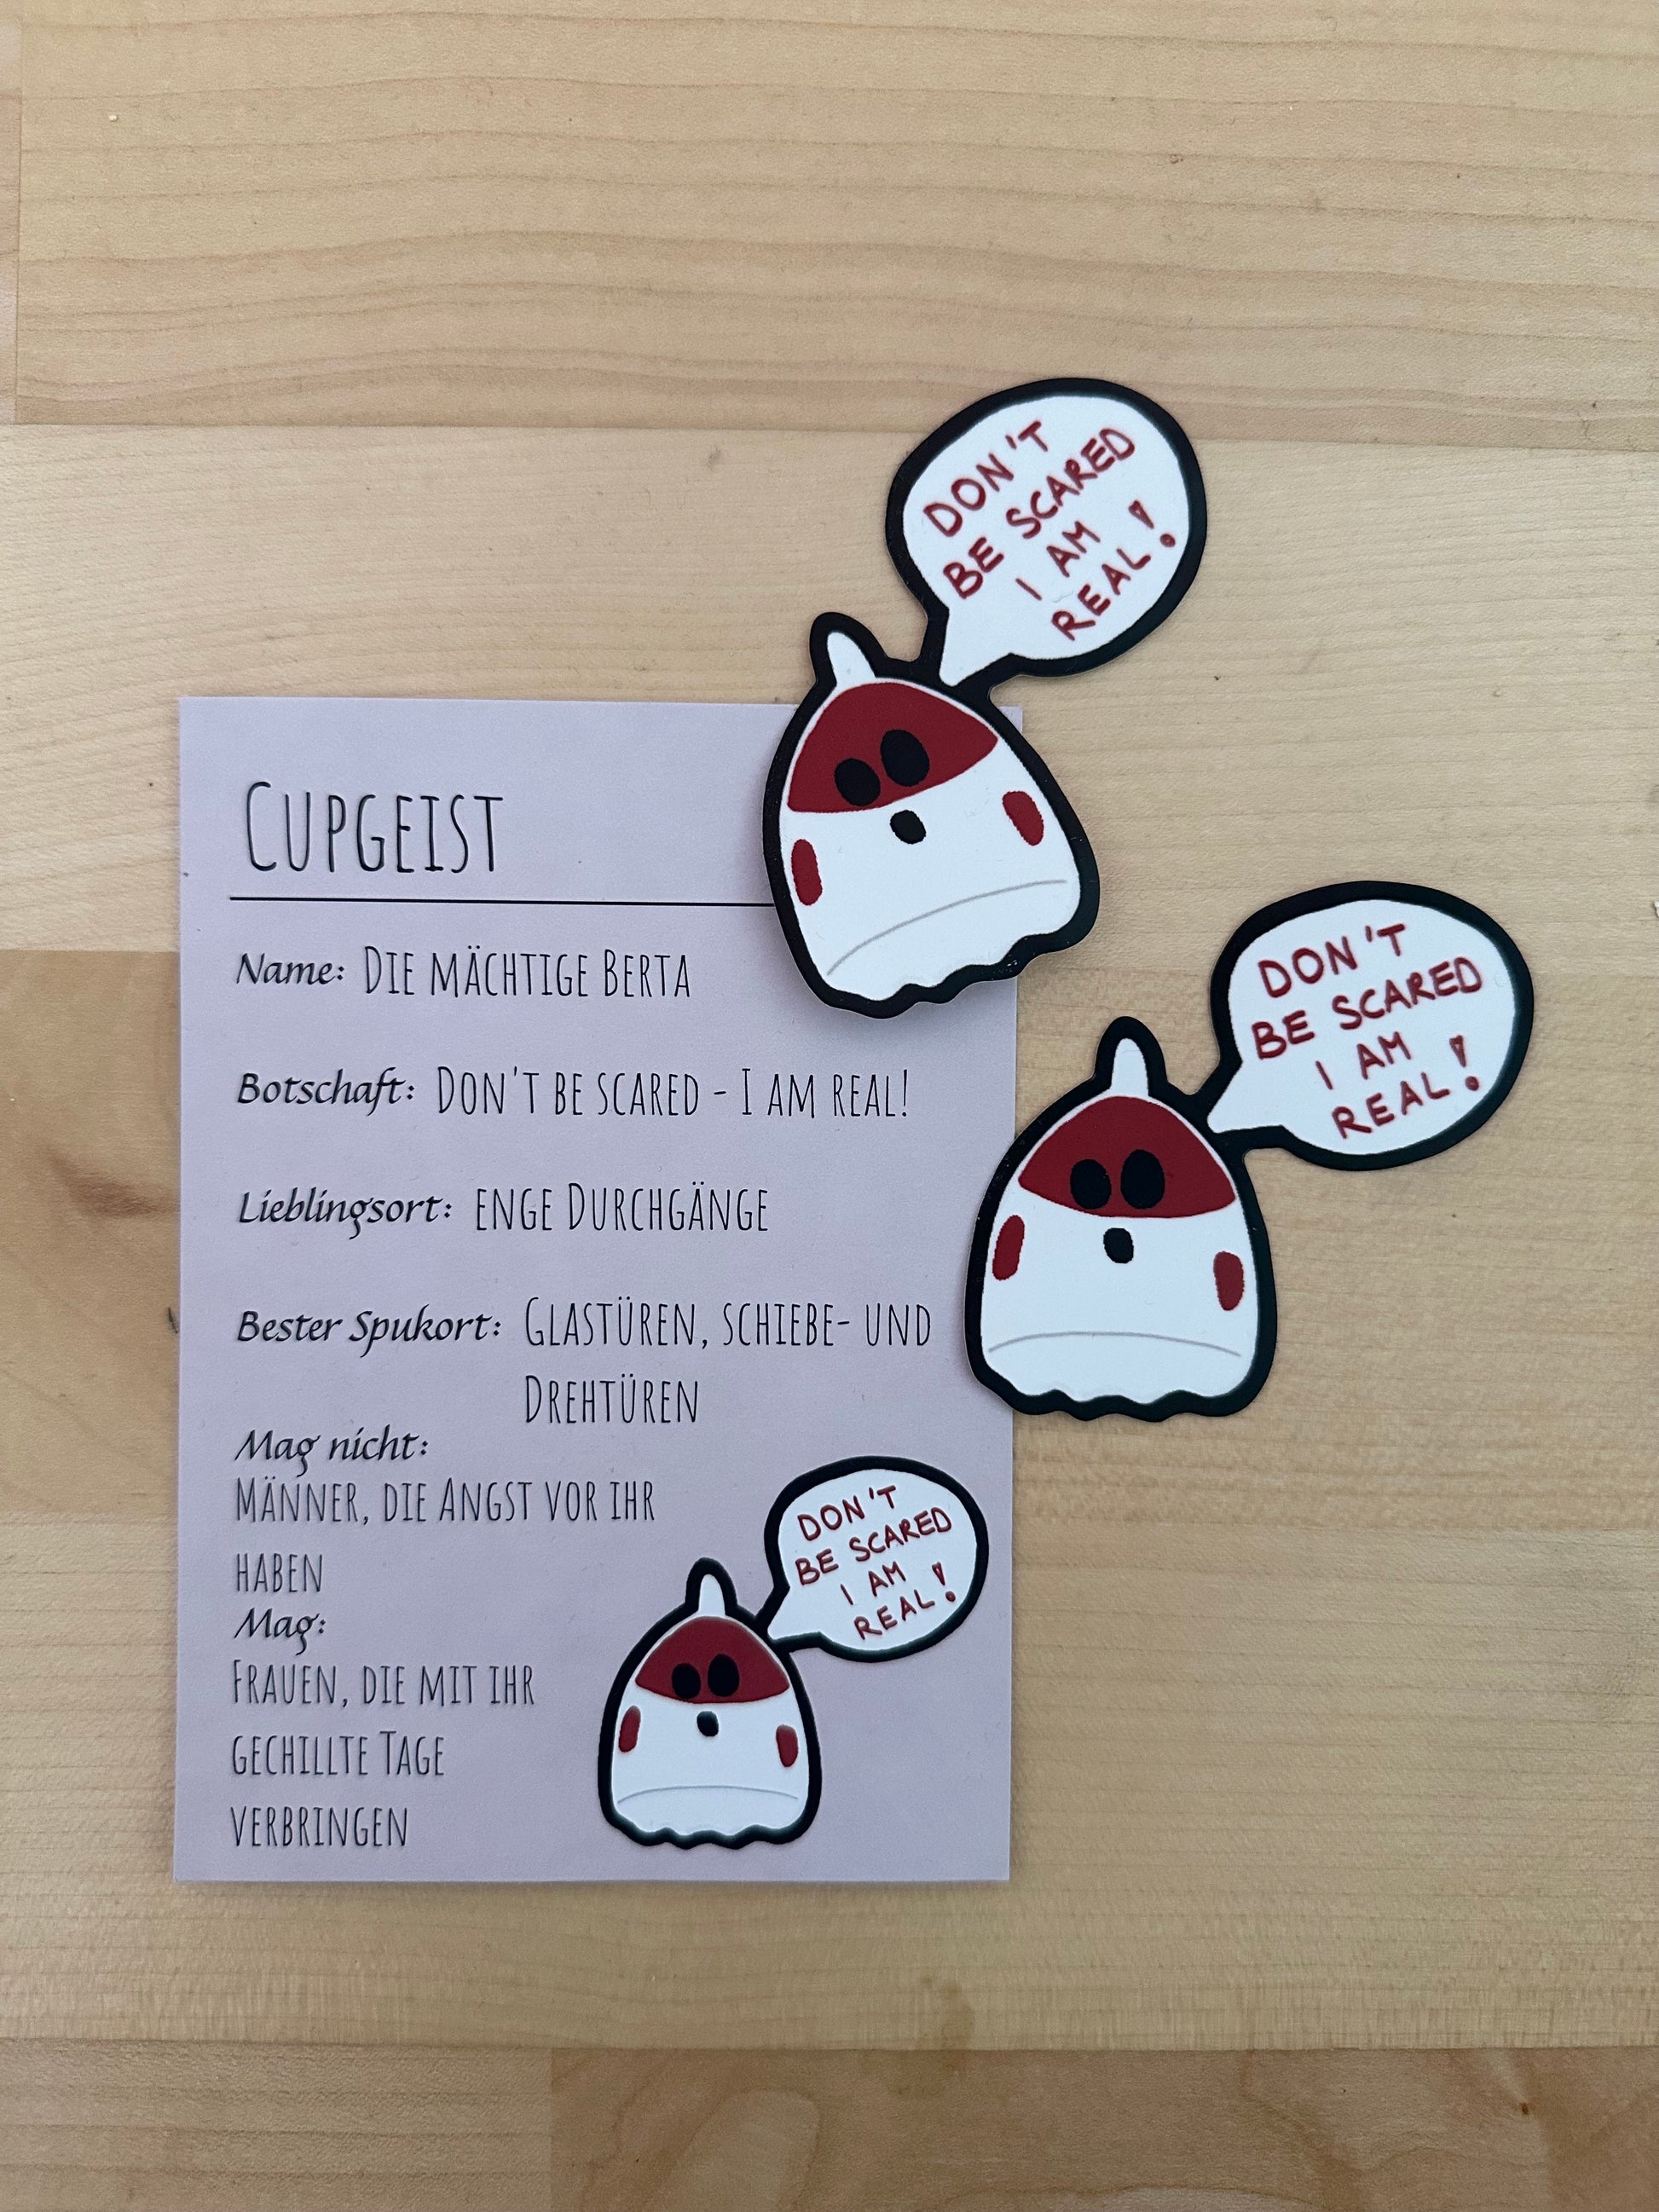 DON'T
BE SCARED
I AM
REAL!
CUPGEIST
Name: DIE MÄCHTIGE BERTA
Botschaft: DON'T BE SCARED - I AM REAL!
Lieblingsort: ENGE DURCHGÄNGE
Bester Spukort: GLASTÜREN, SCHIEBE- UND
DREHTÜREN
Mag nicht:
MÄNNER, DIE ANGST VOR IHR
HABEN
Mag:
FRAUEN, DIE MIT IHR
GECHILLTE TAGE
VERBRINGEN
DON'T
BE SCARED
I AM
REAL!
DON'T
BE SCARED
I AM
REAL!